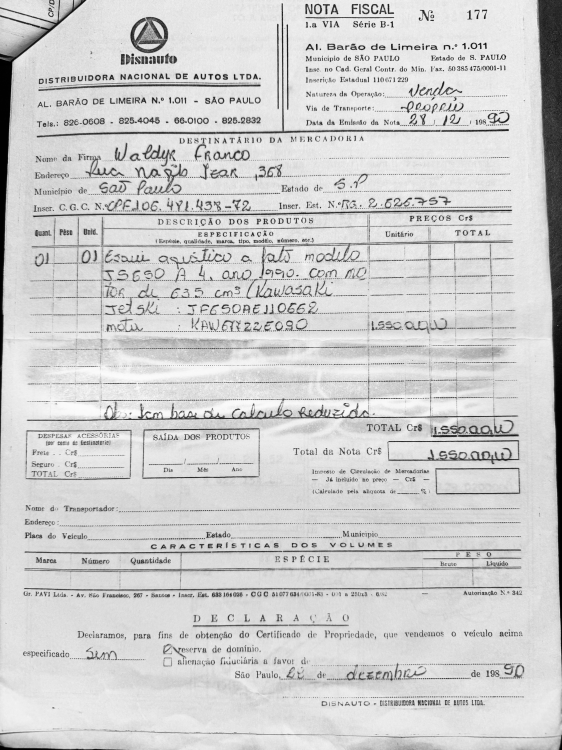 Disnauto
DISTRIBUIDORA NACIONAL DE AUTOS LTDA.
AL. BARÃO DE LIMEIRA N.º 1.011 - SÃO PAULO
Tels.: 826-0608 - 825-4045 - 66-0100 - 825-2832
NOTA FISCAL
1.a VIA Série B-1
Nº 177
Al. Barão de Limeira n.º 1.011
Município de SÃO PAULO Estado de S. PAULO
Insc. no Cad. Geral Contr. do Min. Faz. 50 385 475/0001-11
Inscrição Estadual 110 671 229
Natureza da Operação: Venda
Via de Transporte: próprio
Data da Emissão da Nota 28 / 12 / 1990
DESTINATÁRIO DA MERCADORIA
Nome da Firma Waldyr Franco
Endereço Rua Nagib Izar, 368
Município de São Paulo Estado de S.P
Inscr. C.G.C. N.º CPF 106.481.438-72 Inscr. Est. N.º RG. 2.626.757
DESCRIÇÃO DOS PRODUTOS PREÇOS Cr$
Quant. Pêso Unid. ESPECIFICAÇÃO Unitário TOTAL
(Espécie, qualidade, marca, tipo, modelo, número, etc.)
01 01 Esqui aquático a jato modelo
JS650 A 4, ano 1990. com mo
tor de 635 cm³ (Kawasaki
Jetski : JF650AE110662
motor : KAW67722E090 1.550.00,00
Ob: Icm base de calculo Reduzido.
TOTAL Cr$ 1.550.00,00
DESPESAS ACESSÓRIAS
(por conta do Destinatário)
Frete .. Cr$
Seguro . Cr$
TOTAL Cr$
SAÍDA DOS PRODUTOS
Dia Mês Ano
Total da Nota Cr$ 1.550.00,00
Imposto de Circulação de Mercadorias
— Já incluido no preço — Cr$ —
(Calculado pela alíquota de %)
Nome do Transportador:
Endereço:
Placa do Veículo Estado Município
CARACTERÍSTICAS DOS VOLUMES
Marca Número Quantidade ESPÉCIE PESO
Bruto Líquido
Gr. PAVI Ltda - Av. São Francisco, 267 - Santos - Inscr. Est. 633 104 098 - CGC Autorização N.º 342
DECLARAÇÃO
Declaramos, para fins de obtenção do Certificado de Propriedade, que vendemos o veículo acima
especificado sem reserva de domínio.
alienação fiduciária a favor de
São Paulo, 28 de dezembro de 1990
DISNAUTO - DISTRIBUIDORA NACIONAL DE AUTOS LTDA.